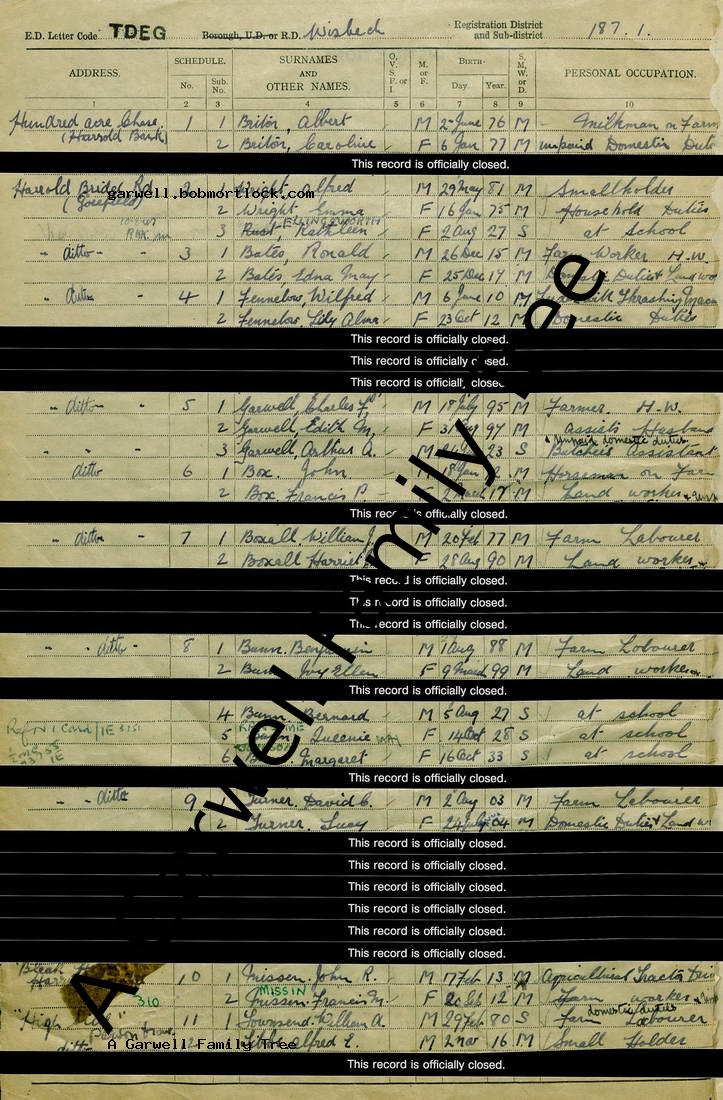 E.D. Letter Code TDEG Borough, U.D. or R.D. Wisbech Registration District and Sub-district 187.1.
ADDRESS. SCHEDULE. No. Sub. No. SURNAMES AND OTHER NAMES. O, V, S, P, or I M. or F. BIRTH- Day. Year. S, M, W, or D. PERSONAL OCCUPATION.
1 2 3 4 5 6 7 8 9 10
Hundred acre Chase, 1 1 Briton, Albert M 2 June 76 M Milkman on Farm
(Harrold Bank) 2 Briton, Caroline F 6 Jan 77 M unpaid Domestic Duti
This record is officially closed.
Harrold Bridge Rd 2 Wright Alfred M 29 May 81 M Smallholder
garwell.bobmortlock.com
2 Wright Emma F 16 Jan 75 M Household Duties
ELLINGWORTH
3 Rust, Kathleen F 2 Aug 27 S at school
" ditto - - 3 1 Bates, Ronald M 26 Dec 15 M Farm Worker H.W.
2 Bates Edna May F 25 Dec 17 M Domestic Duties & Land wo
" ditto - 4 1 Fennelow, Wilfred M 6 June 10 M Thrashing
2 Fennelow, Lily Alma F 23 Oct 12 M Domestic Duties
This record is officially closed.
This record is officially closed.
This record is officially closed.
" ditto - - 5 1 Garwell, Charles F. M 18 July 95 M Farmer. H.W.
2 Garwell, Edith M, F 97 M Assists Husband
& unpaid domestic duties
3 Garwell, Arthur A. M 23 S Butchers Assistant
ditto 6 1 Box. John. M Jan M Horseman on Farm
2 Box Francis P. F 2 March 17 M Land worker
This record is officially closed.
" ditto - 7 1 Boxall William J. M 20 Feb 77 M Farm Labourer
2 Boxall Harriet F 28 Aug 90 M Land worker
This record is officially closed.
This record is officially closed.
This record is officially closed.
" ditto - 8 1 Bunn. Benjamin M 1 Aug 88 M Farm Labourer
2 Bunn Ivy Ellen F 9 March 99 M Land worker
This record is officially closed.
4 Bunn Bernard M 5 Aug 27 S at school
5 Bunn Queenie MAY F 14 Oct 28 S at school
6 Margaret F 16 Oct 33 S at school
This record is officially closed.
" - ditto 9 1 Turner. David C. M 2 Aug 03 M Farm Labourer
2 Turner. Lucy F 24 July 04 M Domestic Duties & Land w
This record is officially closed.
This record is officially closed.
This record is officially closed.
This record is officially closed.
This record is officially closed.
This record is officially closed.
10 1 Missen, John R. M 17 Feb 13 M Agricultural Tractor Driv
MISSIN
310 2 Missen. Francis M. F 20 12 M Farm worker
domestic duties
"High 11 1 Townsend. William A. M 29 Feb 80 S Farm Labourer
ditto Alfred E. M 2 Mar 16 M Small Holder
A Garwell Family Tree
This record is officially closed.
A Garwell Family Tree